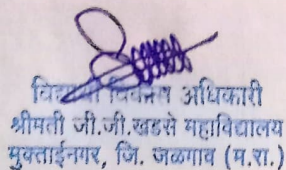 अधिकारी
श्रीमती जी.जी.खडसे महाविद्यालय
मुक्ताईनगर, जि. जळगाव (म.रा.)